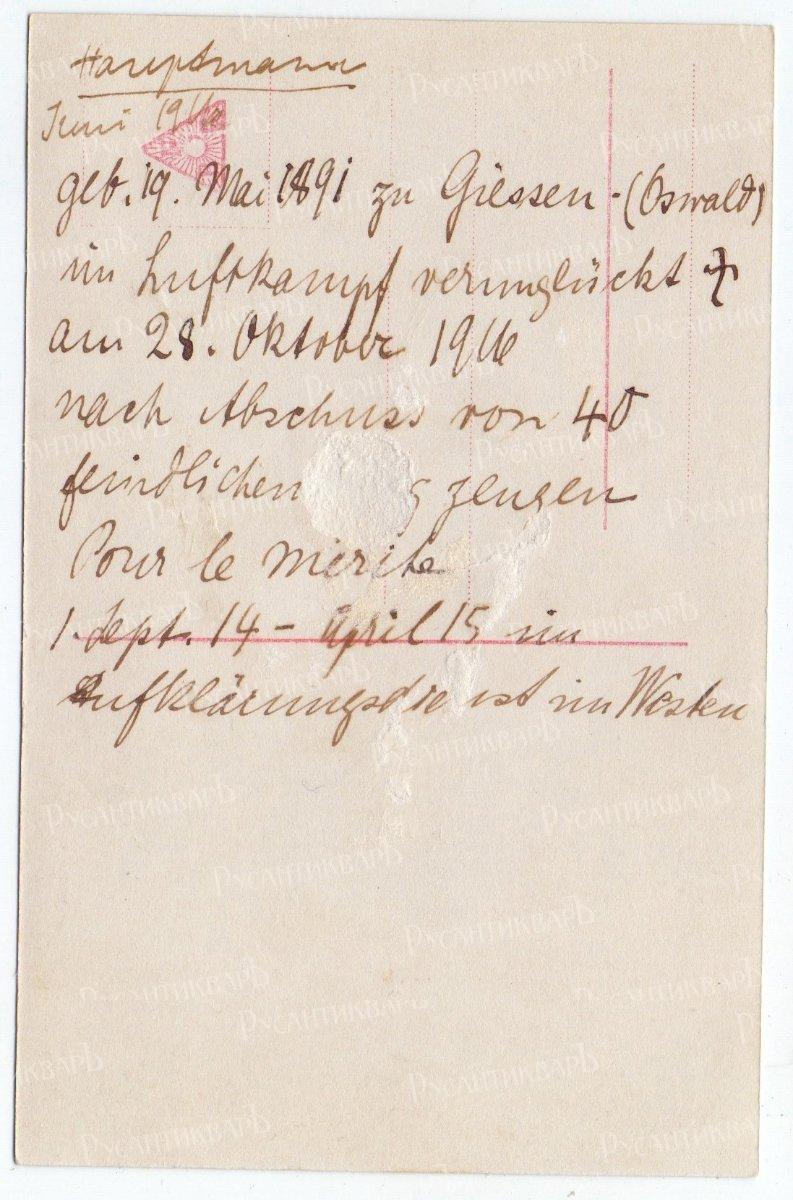 Hauptmann
Juni 1916
geb. 19. Mai 1891 zu Giessen - (Oswald)
im Luftkampf verunglückt †
am 28. Oktober 1916
nach Abschuss von 40
feindlichen gzeugen
Pour le mérite
1. Sept. 14 - April 15 im
Aufklärungsdienst im Westen
РУСАНТИКВАРЪ